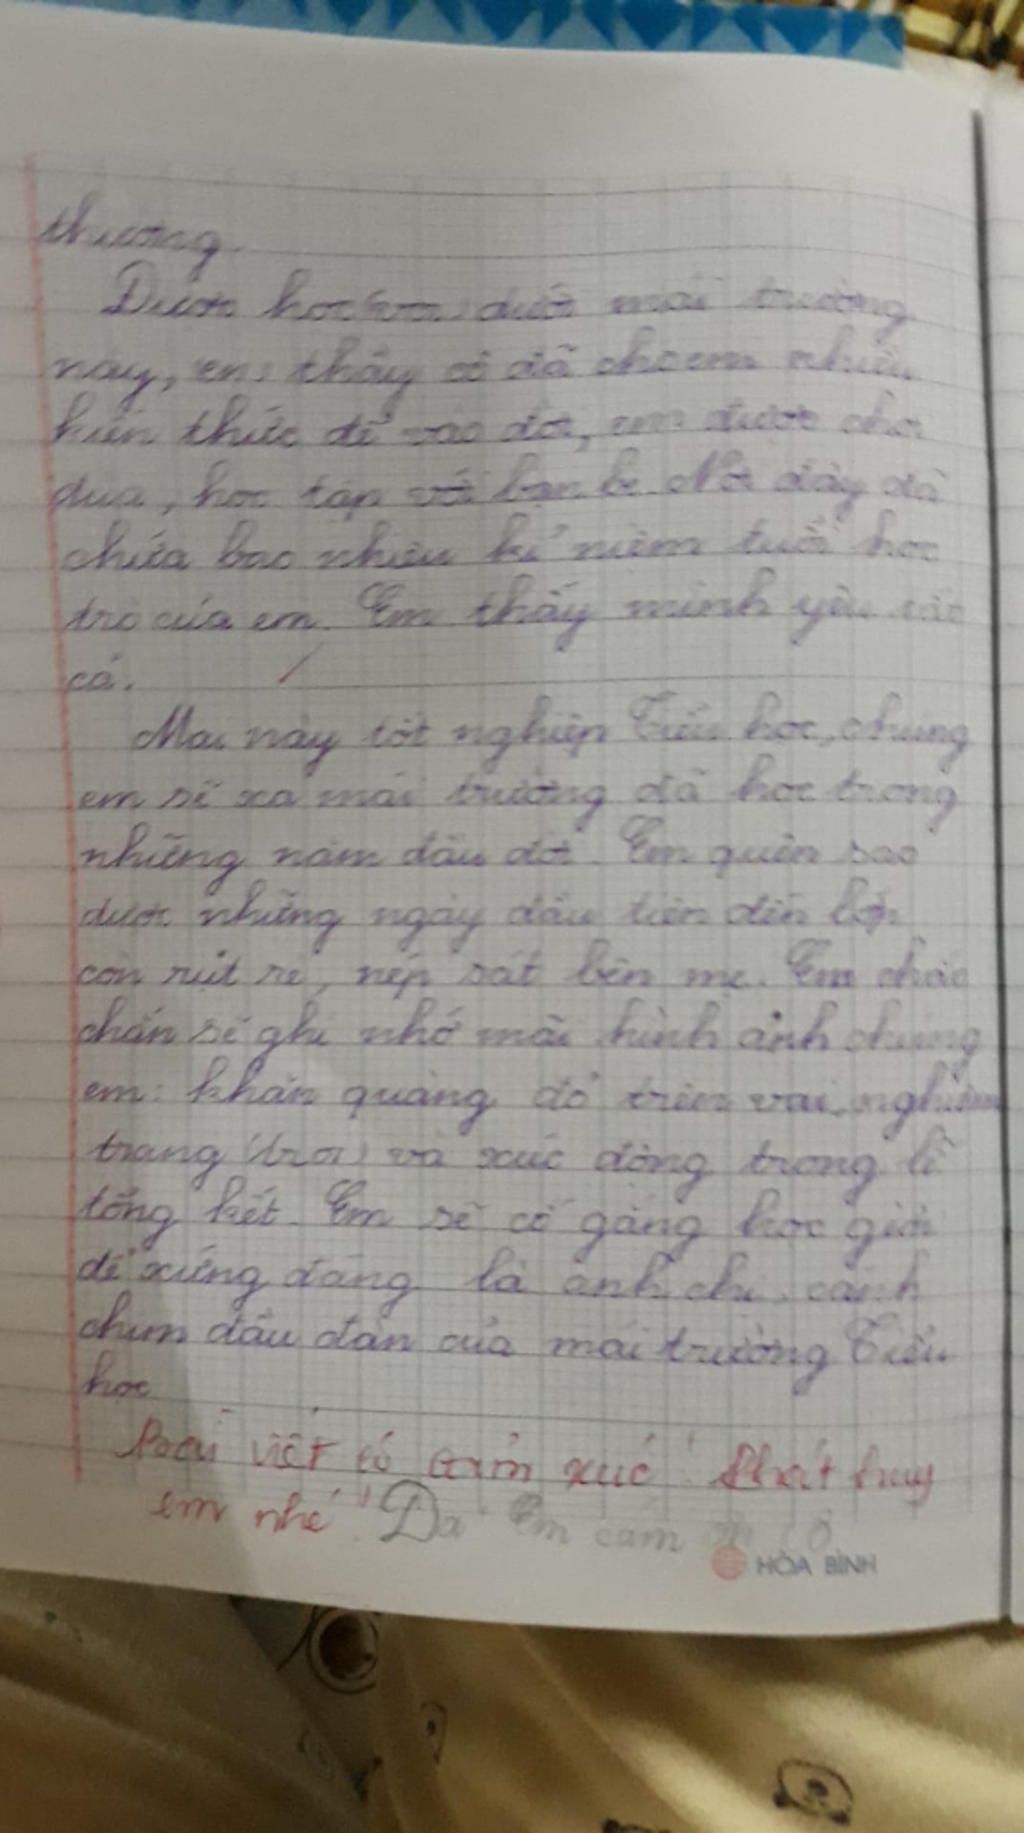 thương.
Được học (trò) dưới mái trường
này, em thầy cô đã cho em nhiều
kiến thức để vào đời, em được chơi
đùa, học tập với bạn bè. Nơi đây đã
chứa bao nhiêu kỉ niệm tuổi học
trò của em. Em thấy mình yêu
cả.
Mai này tốt nghiệp Tiểu học, chúng
em sẽ xa mái trường đã học trong
những năm đầu đời. Em quên sao
được những ngày đầu tiên đến lớp
còn rụt rè, nép sát bên mẹ. Em chắc
chắn sẽ ghi nhớ mãi hình ảnh chúng
em: khăn quàng đỏ trên vai, nghiêm
trang và xúc động trong lễ
tổng kết. Em sẽ cố gắng học giỏi
để xứng đáng là anh chị, cánh
chim đầu đàn của mái trường Tiểu
học
Bài viết có cảm xúc! Phát huy
em nhé! Dạ em cảm ơn cô
HÒA BÌNH